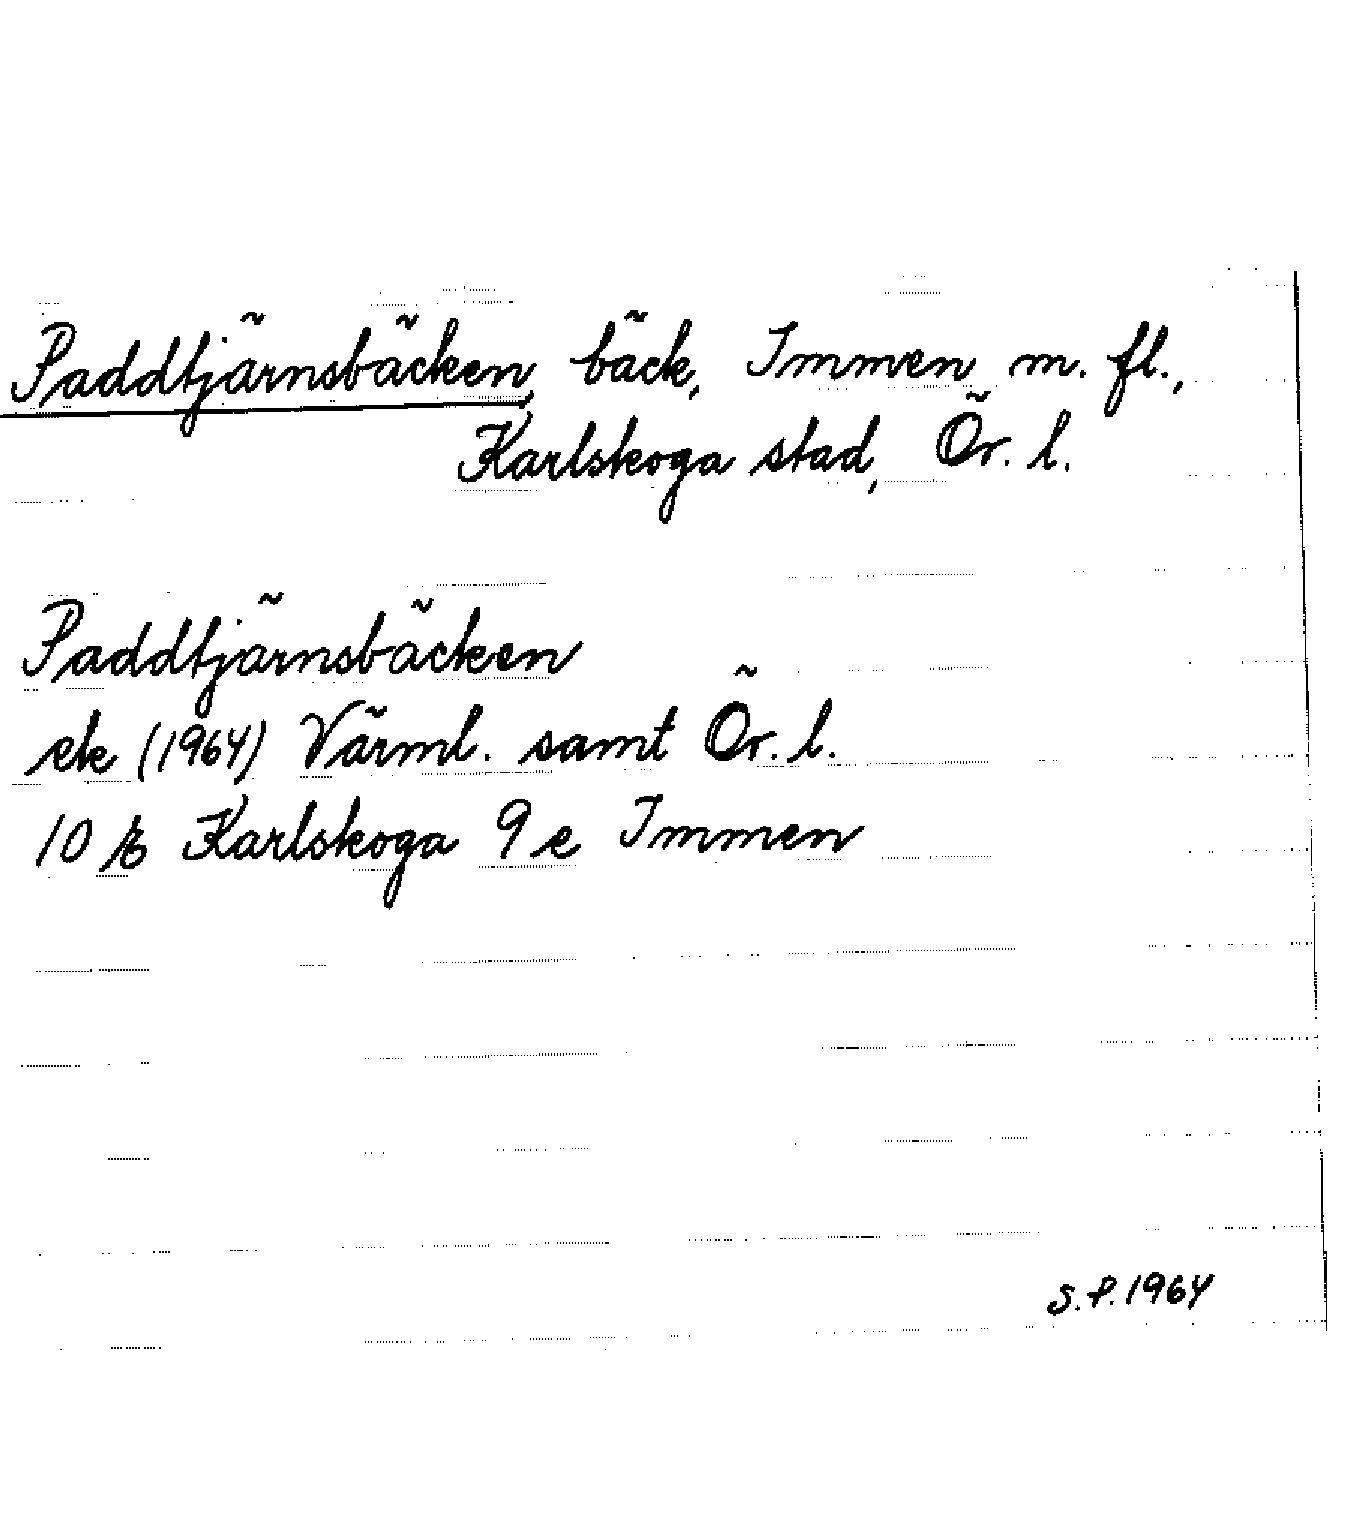 Paddtjärnsbäcken, bäck, Immen m. fl.,
Karlskoga stad, Ör. l.
Paddtjärnsbäcken
ek (1964) Värml. samt Ör. l.
10 Karlskoga 9 e Immen
S.P. 1964